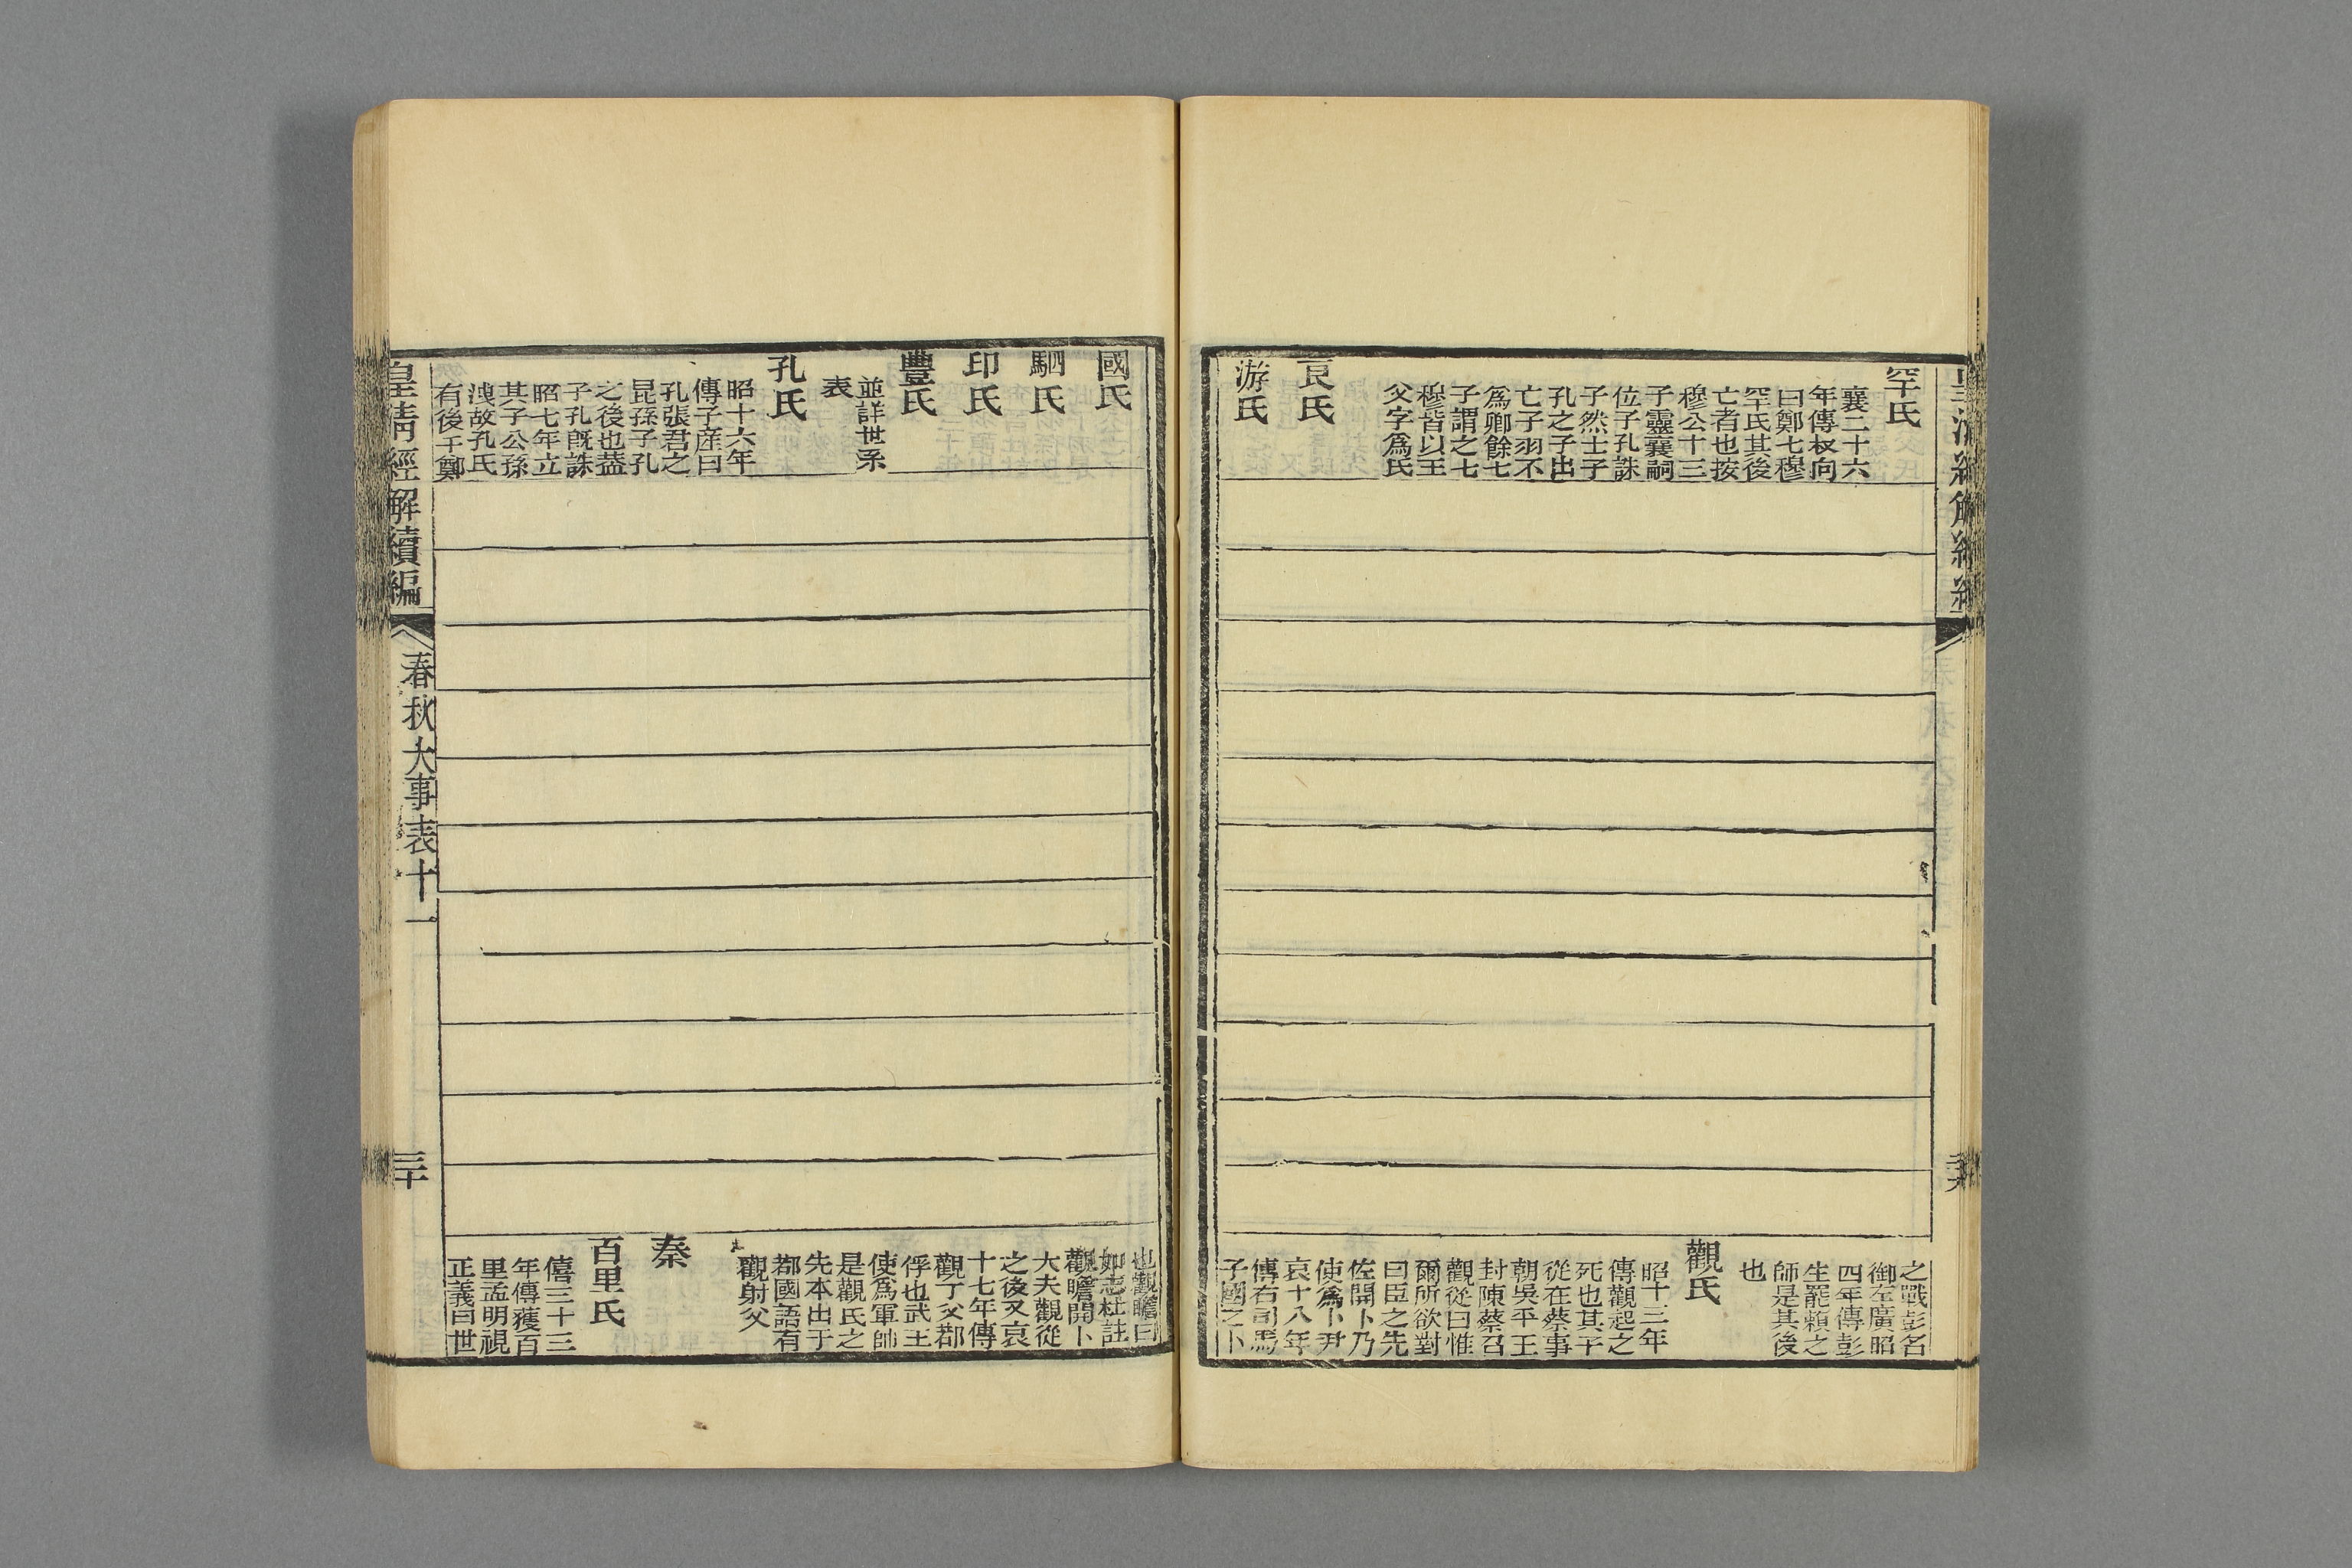 罕氏
襄二十六
年傳叔向
曰鄭七穆
罕氏其後
亡者也按
穆公十三
子靈襄嗣
位子孔誅
子然士子
孔之子出
亡子羽不
爲卿餘七
子謂之七
穆皆以王
父字爲氏
良氏
游氏
之戰彭名
御左廣昭
四年傳彭
生罷賴之
師是其後
也
觀氏
昭十三年
傳觀起之
死也其子
從在蔡事
朝吳平王
封陳蔡召
觀從曰惟
爾所欲對
曰臣之先
佐開卜乃
使爲卜尹
哀十八年
傳右司馬
子國之卜
國氏
駟氏
印氏
豐氏
並詳世系
表
孔氏
昭十六年
傳子産曰
孔張君之
昆孫子孔
之後也葢
子孔旣誅
昭七年立
其子公孫
洩故孔氏
有後于鄭
也觀瞻曰
如志杜註
觀瞻開卜
大夫觀從
之後又哀
十七年傳
觀丁父鄀
俘也武王
使爲軍帥
是觀氏之
先本出于
鄀國語有
觀射父
秦
百里氏
僖三十三
年傳獲百
里孟明視
正義曰世
皇淸經解續編
春秋大事表十一
三十